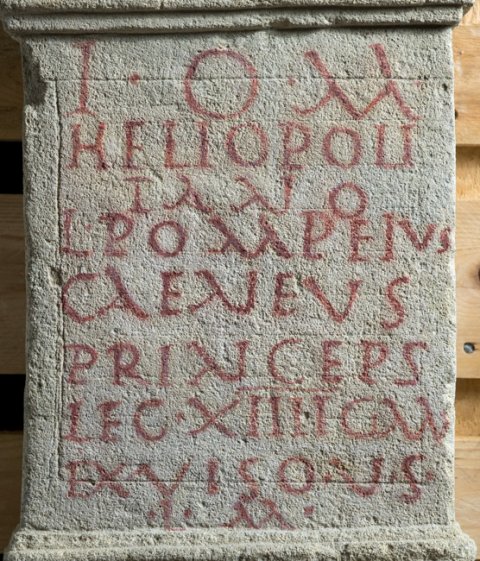 I · O · M
HELIOPOLI
TANO
L · POMPEIVS
CAENEVS
PRINCEPS
LEG · XIIII G M V
EX VISO · VS ·
· L · M ·